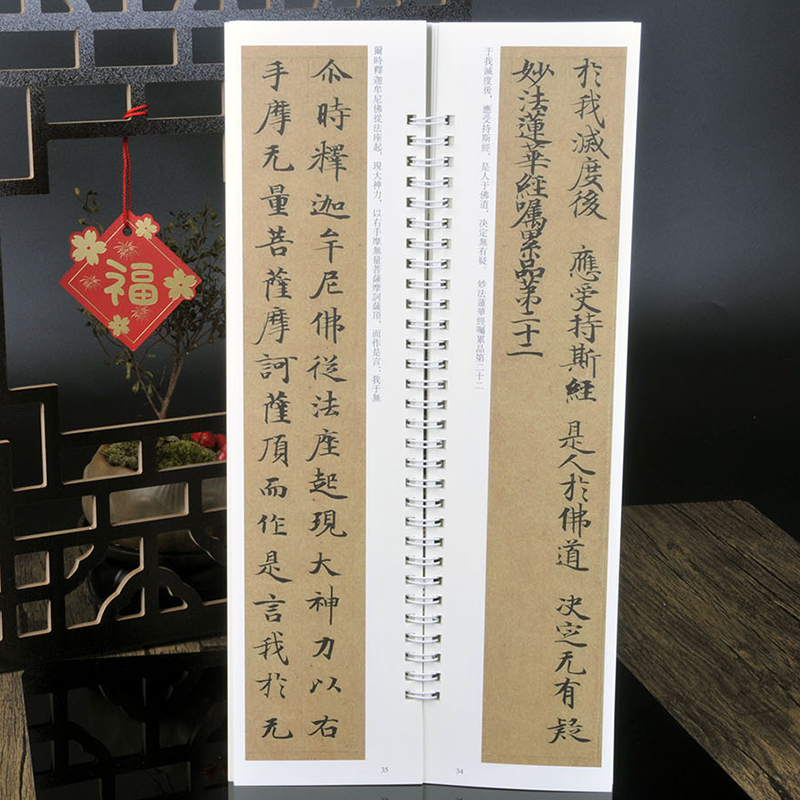 扵我滅度後 應受持斯經 是人扵佛道 決定无有疑
妙法蓮華經囑累品第二十二
于我滅度後，應受持斯經，是人于佛道，決定無有疑。 妙法蓮華經囑累品第二十二
34
爾時釋迦牟尼佛從法座起，現大神力，以右手摩無量菩薩摩訶薩頂，而作是言：我于無
尒時釋迦牟尼佛從法座起現大神力以右
手摩无量菩薩摩訶薩頂而作是言我扵无
35
福